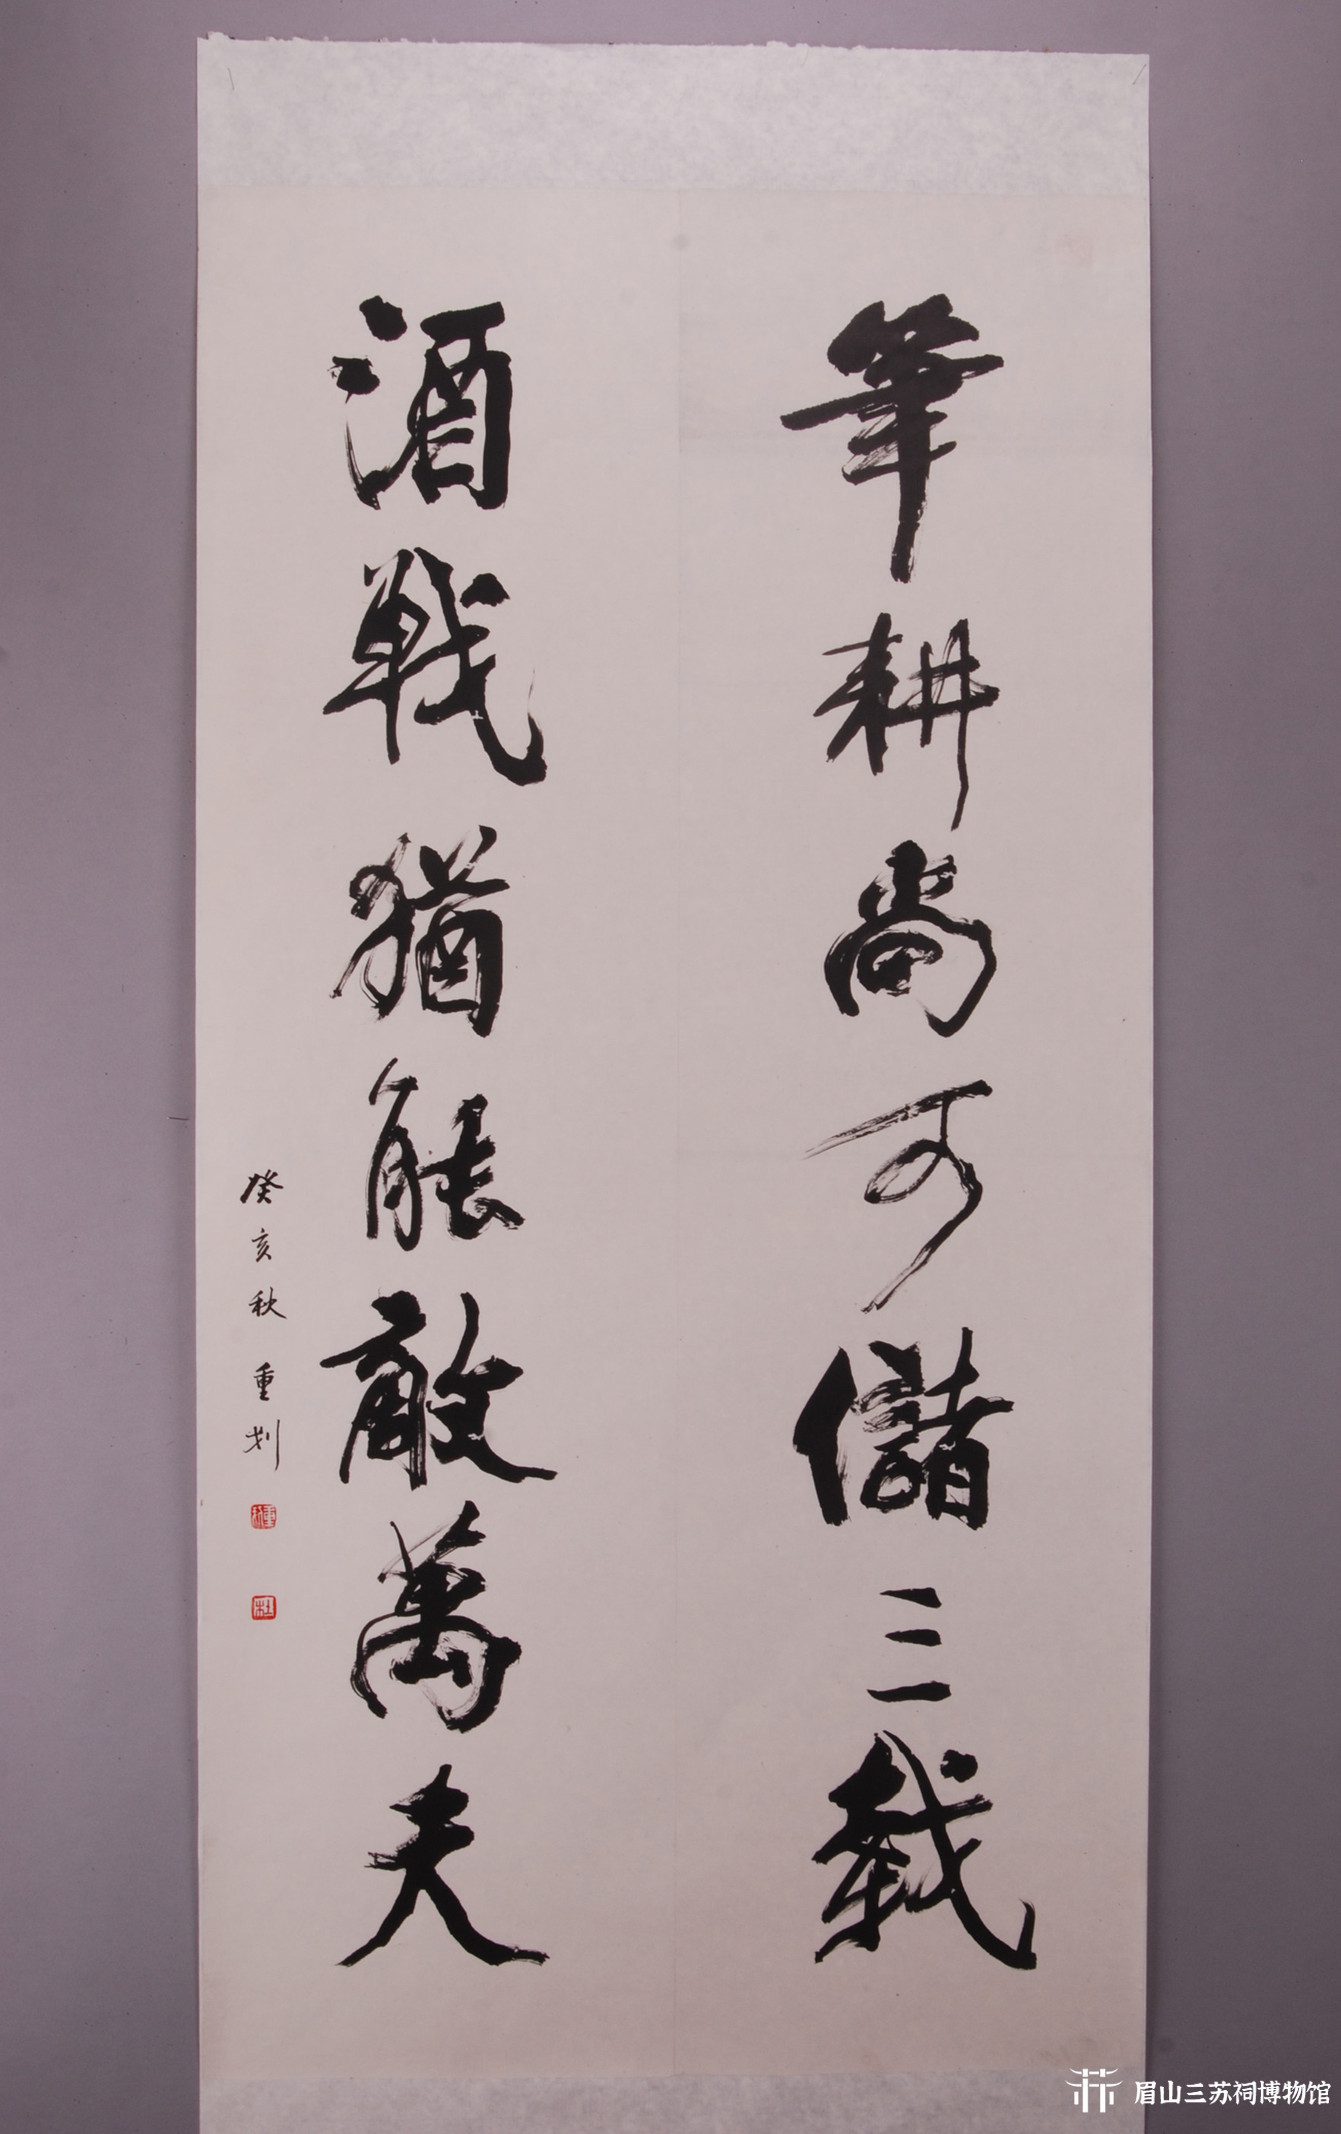 筆耕尚可儲三載
酒戰猶能敵萬夫
癸亥秋 重划
眉山三苏祠博物馆